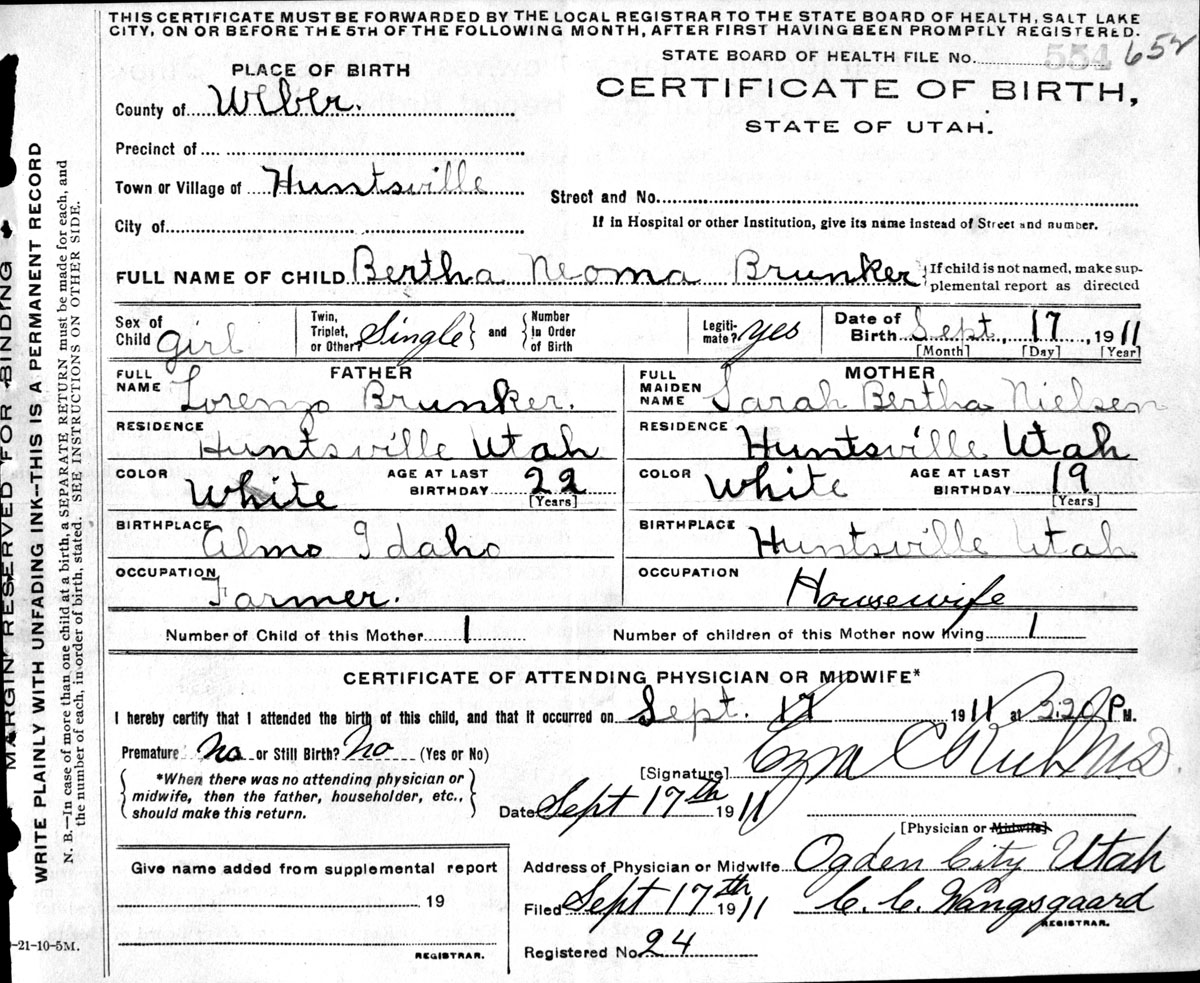 THIS CERTIFICATE MUST BE FORWARDED BY THE LOCAL REGISTRAR TO THE STATE BOARD OF HEALTH, SALT LAKE
CITY, ON OR BEFORE THE 5TH OF THE FOLLOWING MONTH, AFTER FIRST HAVING BEEN PROMPTLY REGISTERED.
STATE BOARD OF HEALTH FILE NO. 554 652
PLACE OF BIRTH
CERTIFICATE OF BIRTH,
County of Weber.
STATE OF UTAH.
Precinct of
Town or Village of Huntsville
Street and No.
City of
If in Hospital or other Institution, give its name instead of Street and number.
FULL NAME OF CHILD Bertha Neoma Brunker {If child is not named, make sup-
plemental report as directed
Sex of Child girl Twin, Triplet, or Other? Single} and {Number In Order of Birth Legiti-mate? yes Date of Birth Sept. 17, 1911
[Month] [Day] [Year]
FATHER MOTHER
FULL NAME Lorenzo Brunker. FULL MAIDEN NAME Sarah Bertha Nielsen
RESIDENCE Huntsville Utah RESIDENCE Huntsville Utah
COLOR White AGE AT LAST BIRTHDAY 22 [Years] COLOR White AGE AT LAST BIRTHDAY 19 [Years]
BIRTHPLACE Almo Idaho BIRTHPLACE Huntsville Utah
OCCUPATION Farmer. OCCUPATION Housewife
Number of Child of this Mother 1 Number of children of this Mother now living 1
CERTIFICATE OF ATTENDING PHYSICIAN OR MIDWIFE*
I hereby certify that I attended the birth of this child, and that it occurred on Sept. 17 1911 at 2:20 P M.
Premature? No or Still Birth? No (Yes or No)
*When there was no attending physician or
midwife, then the father, householder, etc.,
should make this return.
[Signature] Ezra C Rich MD.
Date Sept 17th 1911
[Physician or Midwife]
Give name added from supplemental report
19
REGISTRAR.
Address of Physician or Midwife Ogden City Utah
Filed Sept 17th 1911 C. C. Wangsgaard
REGISTRAR.
Registered No. 24
-21-10-5M.
MARGIN RESERVED FOR BINDING
WRITE PLAINLY WITH UNFADING INK—THIS IS A PERMANENT RECORD
N. B.—In case of more than one child at a birth, a SEPARATE RETURN must be made for each, and
the number of each, in order of birth, stated. SEE INSTRUCTIONS ON OTHER SIDE.